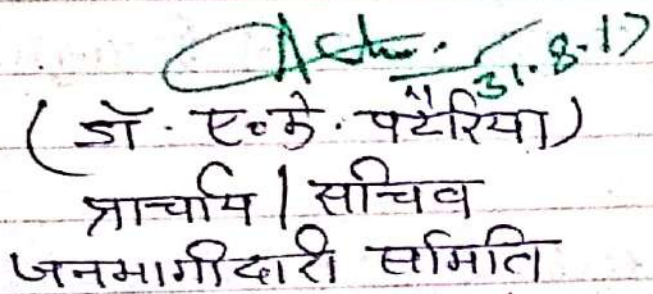 31.8.17
(डॉ. ए.के. पटैरिया)
प्राचार्य | सचिव
जनभागीदारी समिति